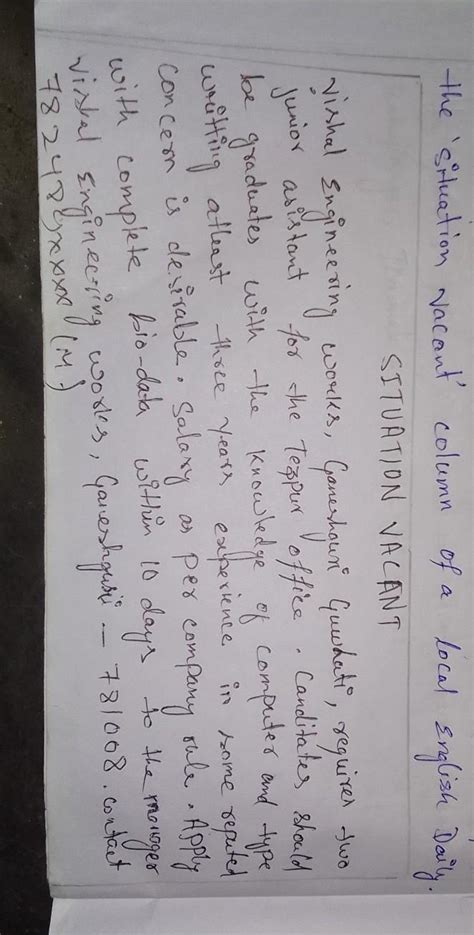 the 'Situation Vacant' column of a local English Daily.
SITUATION VACANT
Vishal Engineering works, Ganeshguri Guwhati, requires two
junior asistant for the Tezpur office. Canditates should
be graduates with the knowledge of computer and type
writting atleast three years experience in some reputed
concern is desirable. Salary as per company rule. Apply
with complete bio-data within 10 days to the manager
Vishal Engineering works, Ganeshguri - 781008. contact